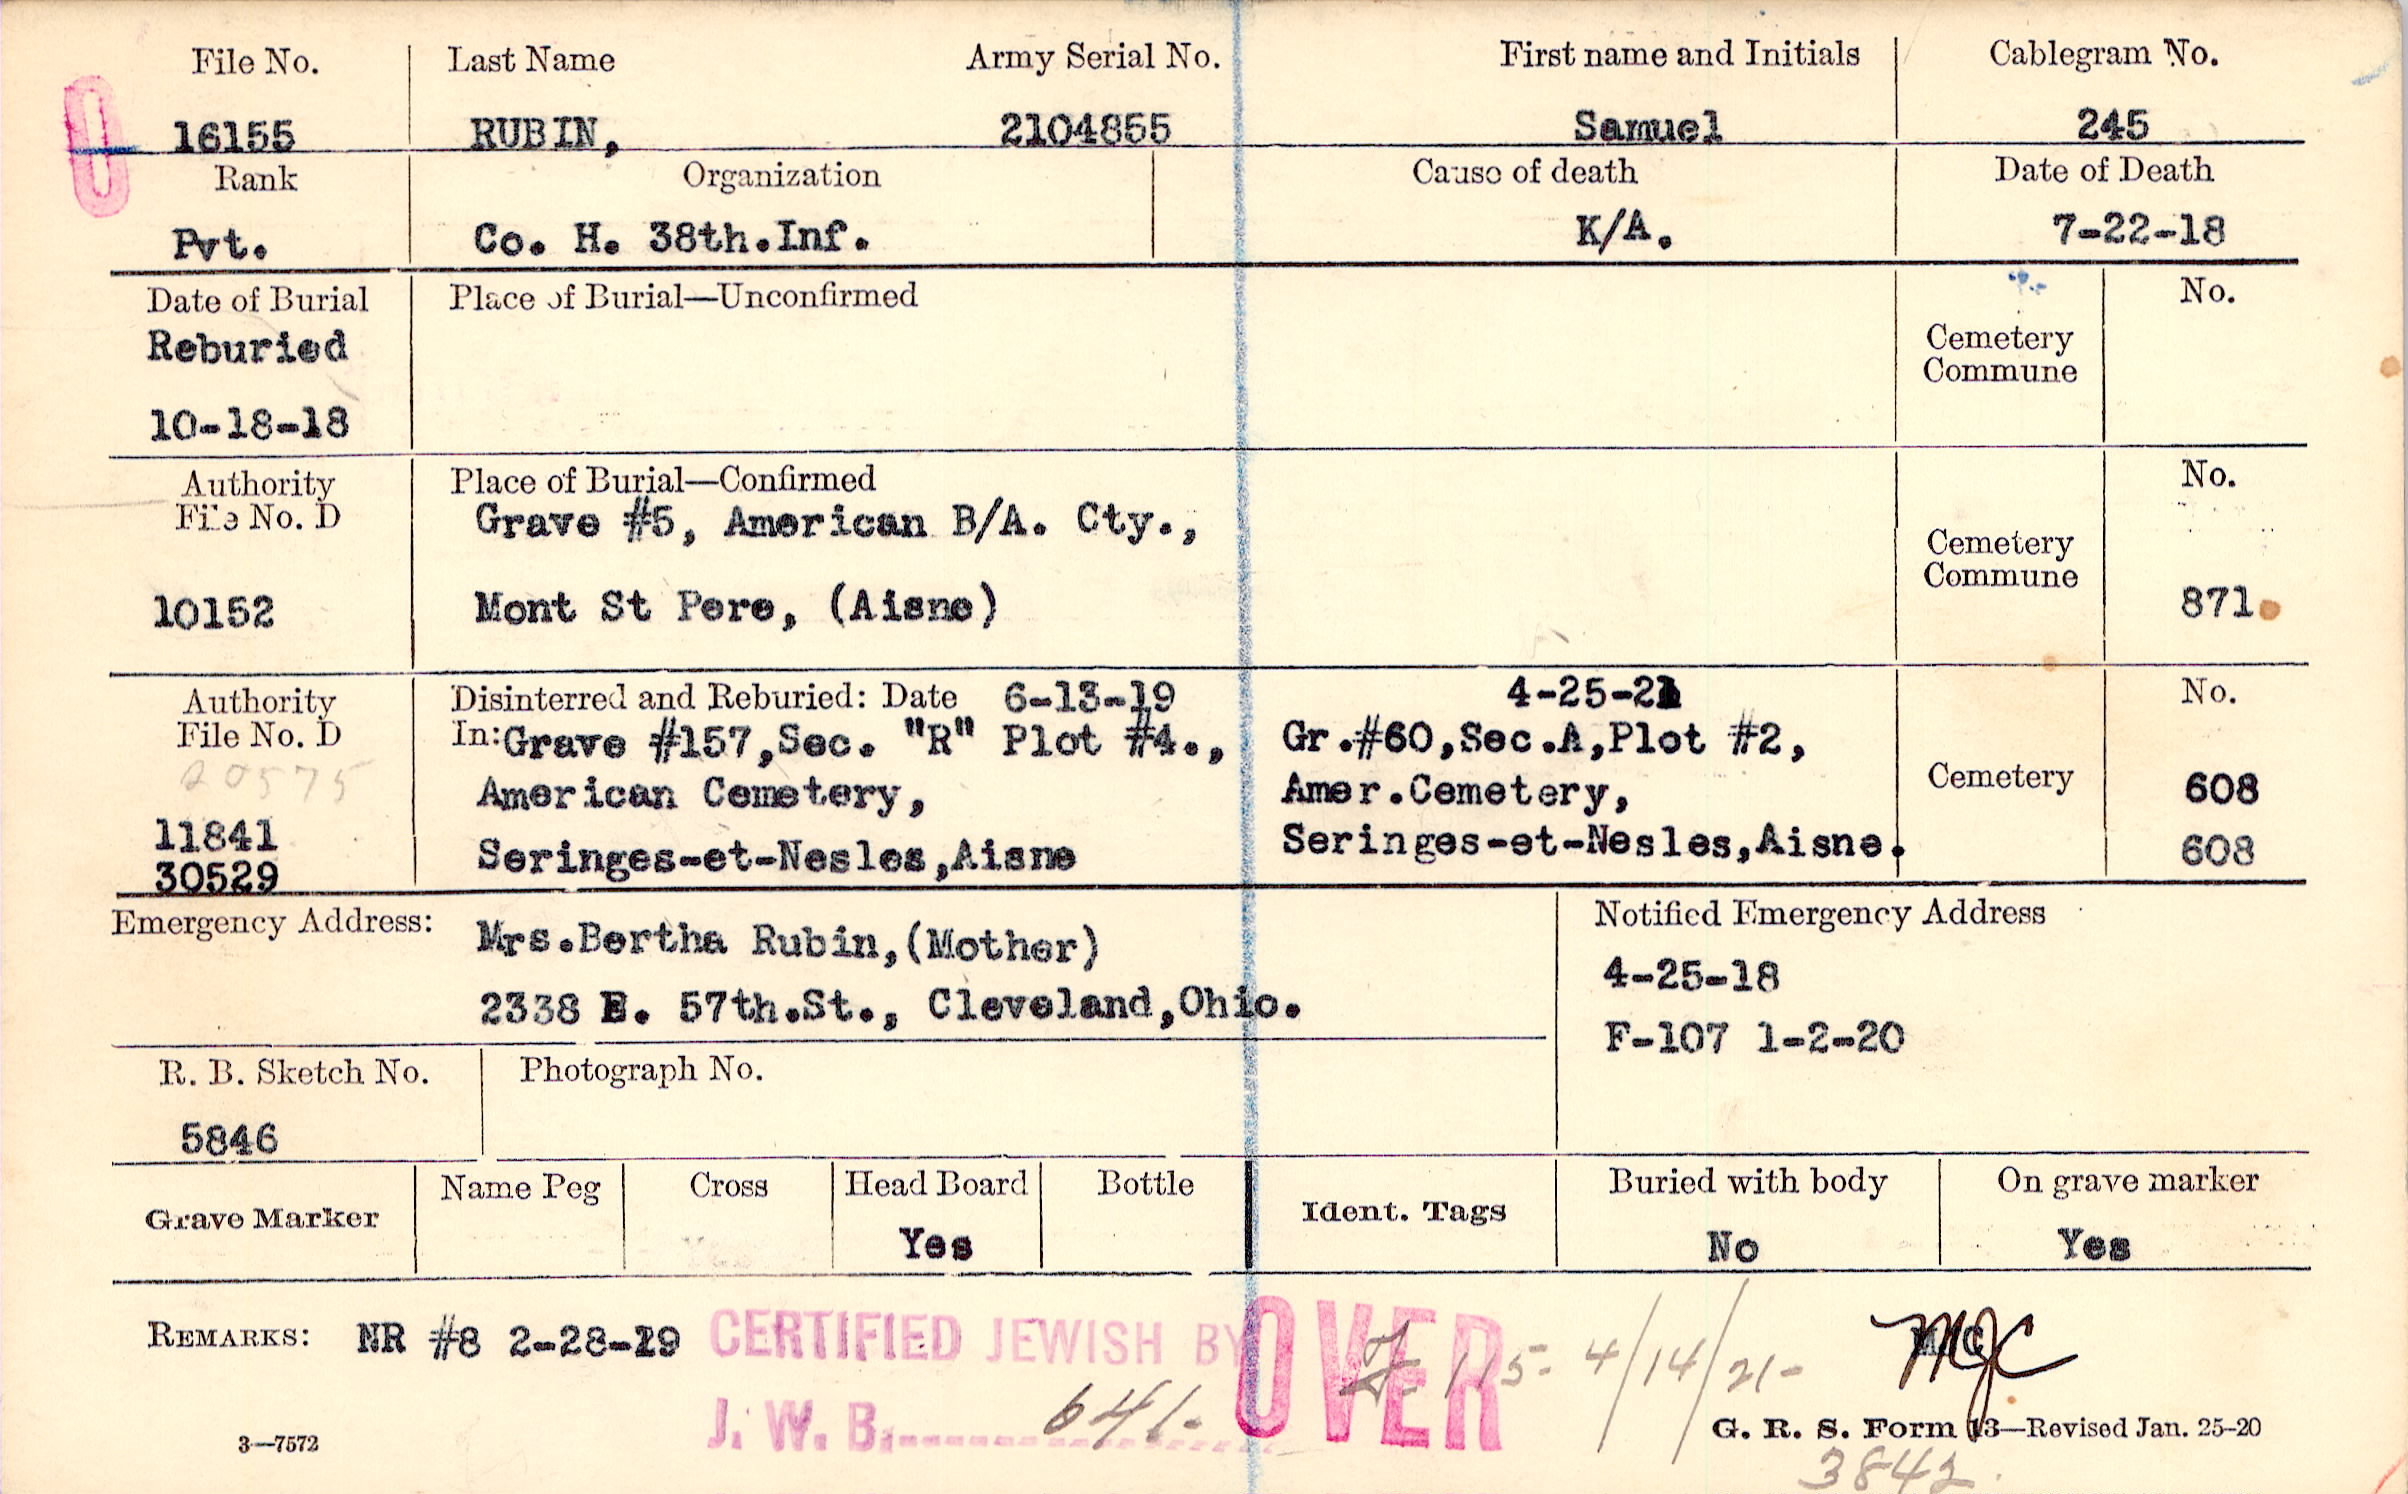 File No. Last Name Army Serial No. First name and Initials Cablegram No.
16155 RUBIN, 2104855 Samuel 245
Rank Organization Cause of death Date of Death
Pvt. Co. H. 38th.Inf. K/A. 7-22-18
Date of Burial Place of Burial—Unconfirmed No.
Reburied
Cemetery
Commune
10-18-18
Authority Place of Burial—Confirmed No.
File No. D Grave #5, American B/A. Cty.,
Cemetery
Commune
10152 Mont St Pere, (Aisne) 871
Authority Disinterred and Reburied: Date 6-13-19 4-25-21 No.
File No. D In: Grave #157,Sec. "R" Plot #4., Gr.#60,Sec.A,Plot #2,
20575 American Cemetery, Amer.Cemetery, Cemetery 608
11841 Seringes-et-Nesles,Aisne Seringes-et-Nesles,Aisne. 608
30529
Emergency Address: Mrs.Bertha Rubin,(Mother) Notified Emergency Address
4-25-18
2338 E. 57th.St., Cleveland,Ohio.
F-107 1-2-20
R. B. Sketch No. Photograph No.
5846
Grave Marker Name Peg Cross Head Board Bottle Ident. Tags Buried with body On grave marker
Yes No Yes
REMARKS: NR #8 2-28-19 CERTIFIED JEWISH BY OVER MJC
J. W. B. 641- 115- 4/14/21-
3—7572 G. R. S. Form 13—Revised Jan. 25-20
3842.